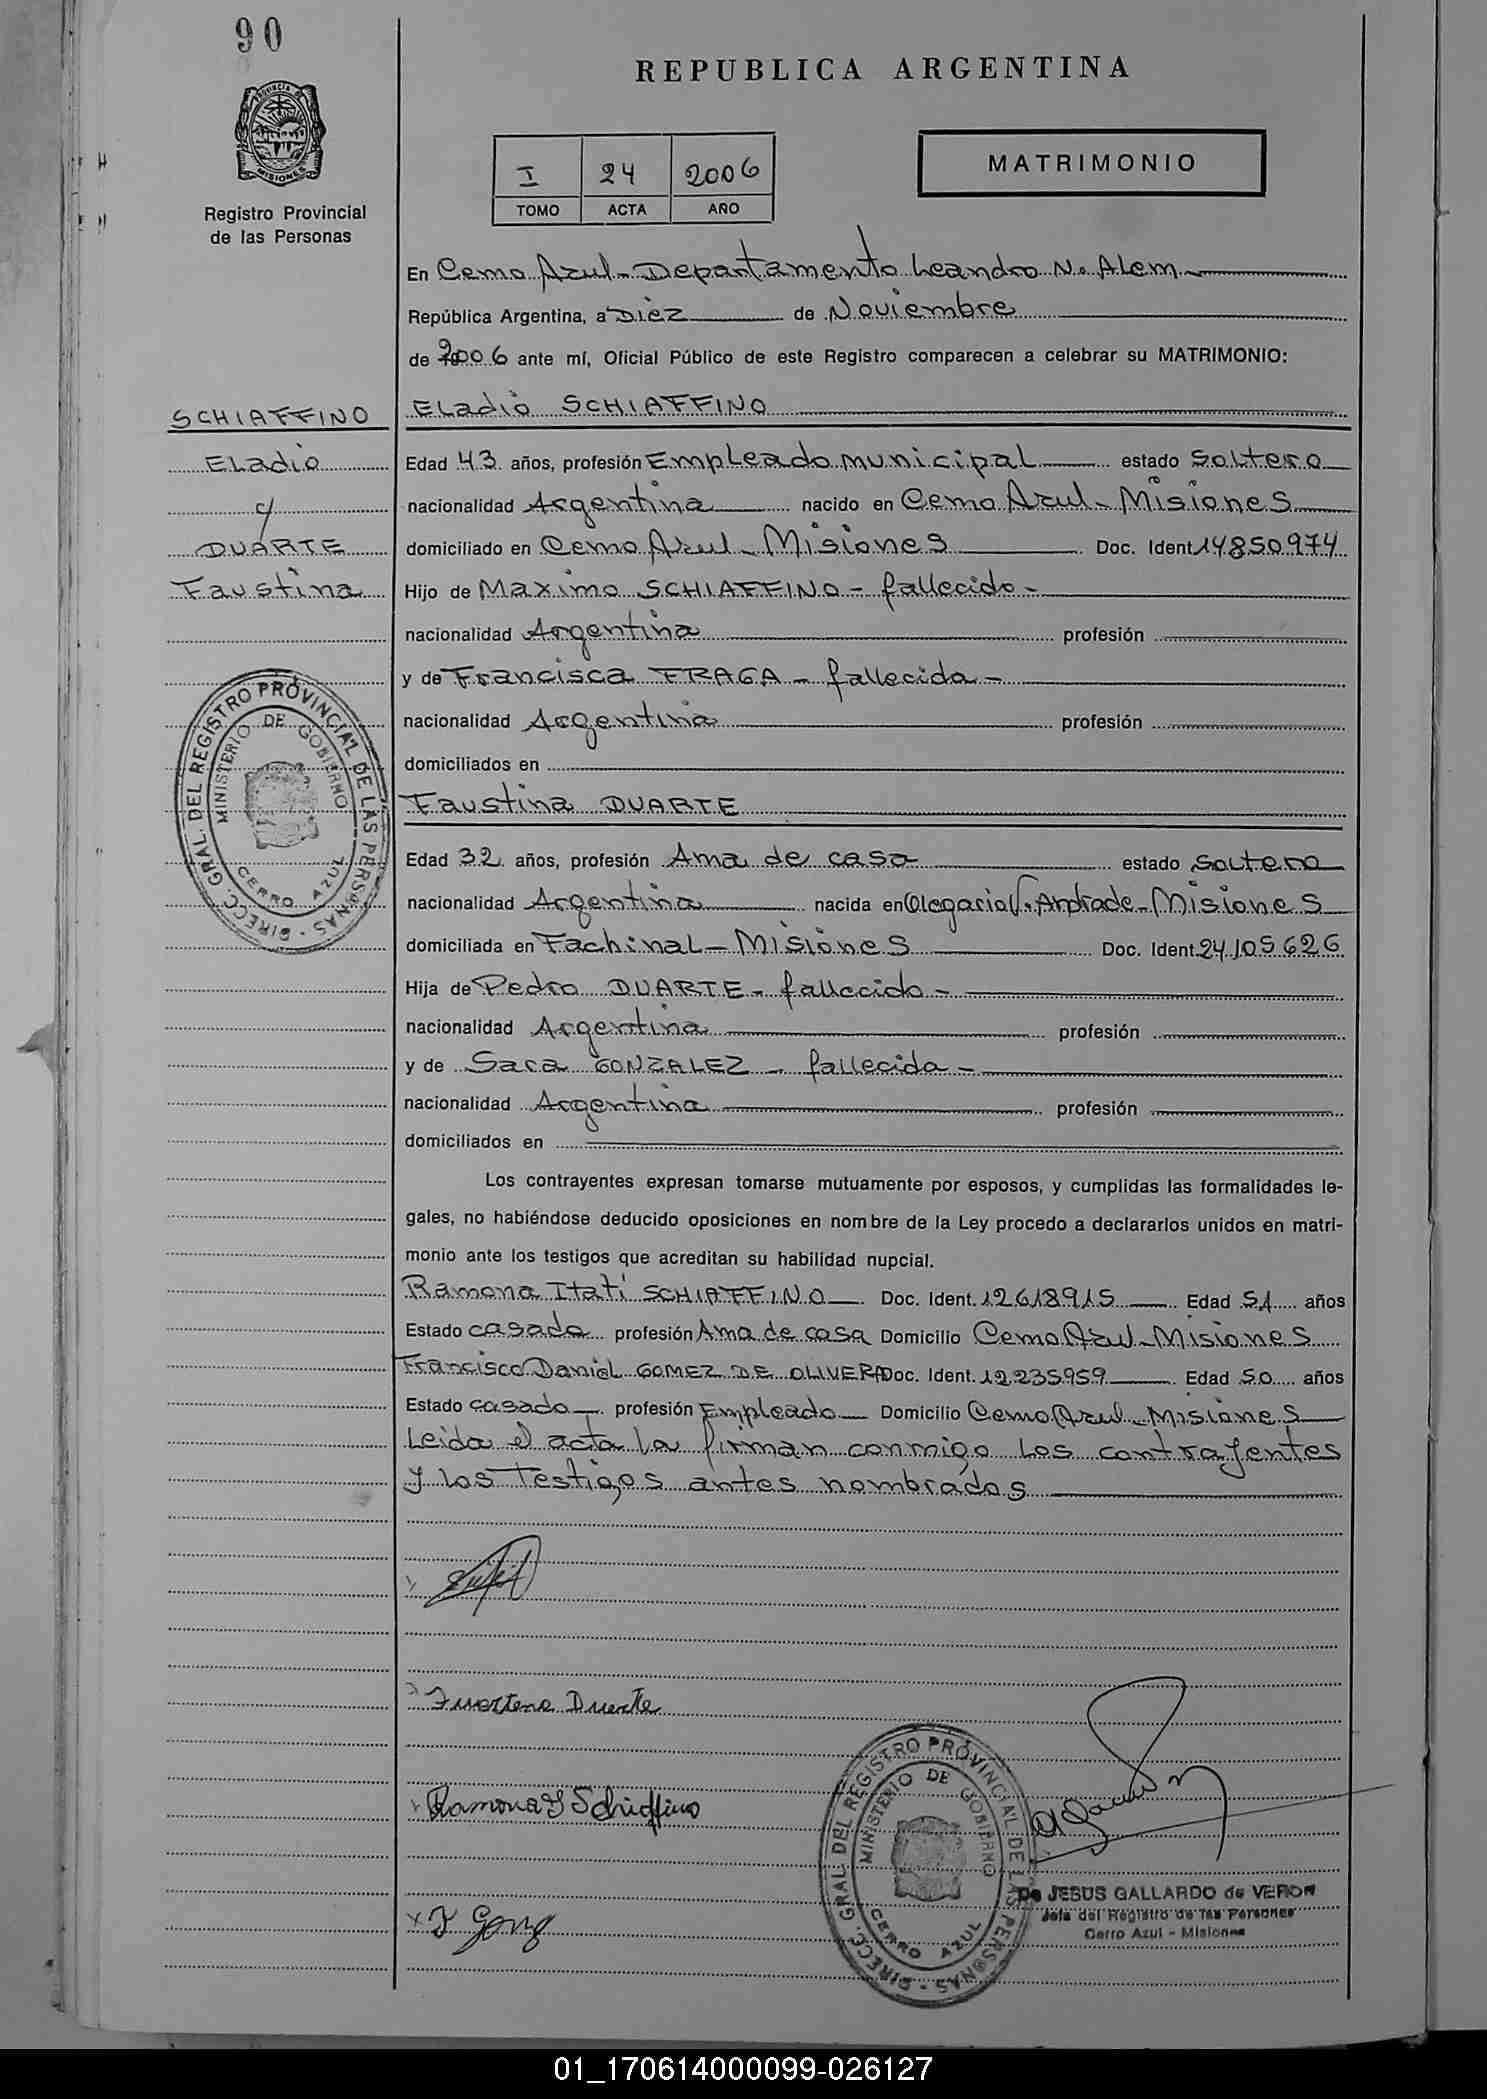 90
REPUBLICA ARGENTINA
PROVINCIA DE
MISIONES
Registro Provincial
de las Personas
I 24 2006
TOMO ACTA AÑO
MATRIMONIO
En Cerro Azul - Departamento Leandro N. Alem
República Argentina, a Diez de Noviembre
de 2006 ante mí, Oficial Público de este Registro comparecen a celebrar su MATRIMONIO:
SCHIAFFINO
Eladio
y
DUARTE
Faustina
Eladio SCHIAFFINO
Edad 43 años, profesión Empleado municipal estado Soltero
nacionalidad Argentina nacido en Cerro Azul - Misiones
domiciliado en Cerro Azul - Misiones Doc. Ident. 14850974
Hijo de Maximo SCHIAFFINO - fallecido -
nacionalidad Argentina profesión
y de Francisca FRAGA - fallecida -
nacionalidad Argentina profesión
domiciliados en
Faustina DUARTE
Edad 32 años, profesión Ama de casa estado Soltera
nacionalidad Argentina nacida en Olegario V. Andrade - Misiones
domiciliada en Fachinal - Misiones Doc. Ident. 24.105.626
Hija de Pedro DUARTE - fallecido -
nacionalidad Argentina profesión
y de Sara GONZALEZ - fallecida -
nacionalidad Argentina profesión
domiciliados en
Los contrayentes expresan tomarse mutuamente por esposos, y cumplidas las formalidades le-
gales, no habiéndose deducido oposiciones en nombre de la Ley procedo a declararlos unidos en matri-
monio ante los testigos que acreditan su habilidad nupcial.
Ramona Itatí SCHIAFFINO Doc. Ident. 12618915 Edad 51 años
Estado casada profesión Ama de casa Domicilio Cerro Azul - Misiones
Francisco Daniel GOMEZ DE OLIVERA Doc. Ident. 12235959 Edad 50 años
Estado casado profesión Empleado Domicilio Cerro Azul - Misiones
Leida el acta la firman conmigo los contrayentes
y los testigos antes nombrados
DIRECC. GRAL. DEL REGISTRO PROVINCIAL DE LAS PERSONAS
MINISTERIO DE GOBIERNO
CERRO AZUL
Fuestena Duerte
Ramona I Schieffino
DIRECC. GRAL. DEL REGISTRO PROVINCIAL DE LAS PERSONAS
MINISTERIO DE GOBIERNO
CERRO AZUL
De JESUS GALLARDO de VERON
Jefa del Registro de las Personas
Cerro Azul - Misiones
01_170614000099-026127